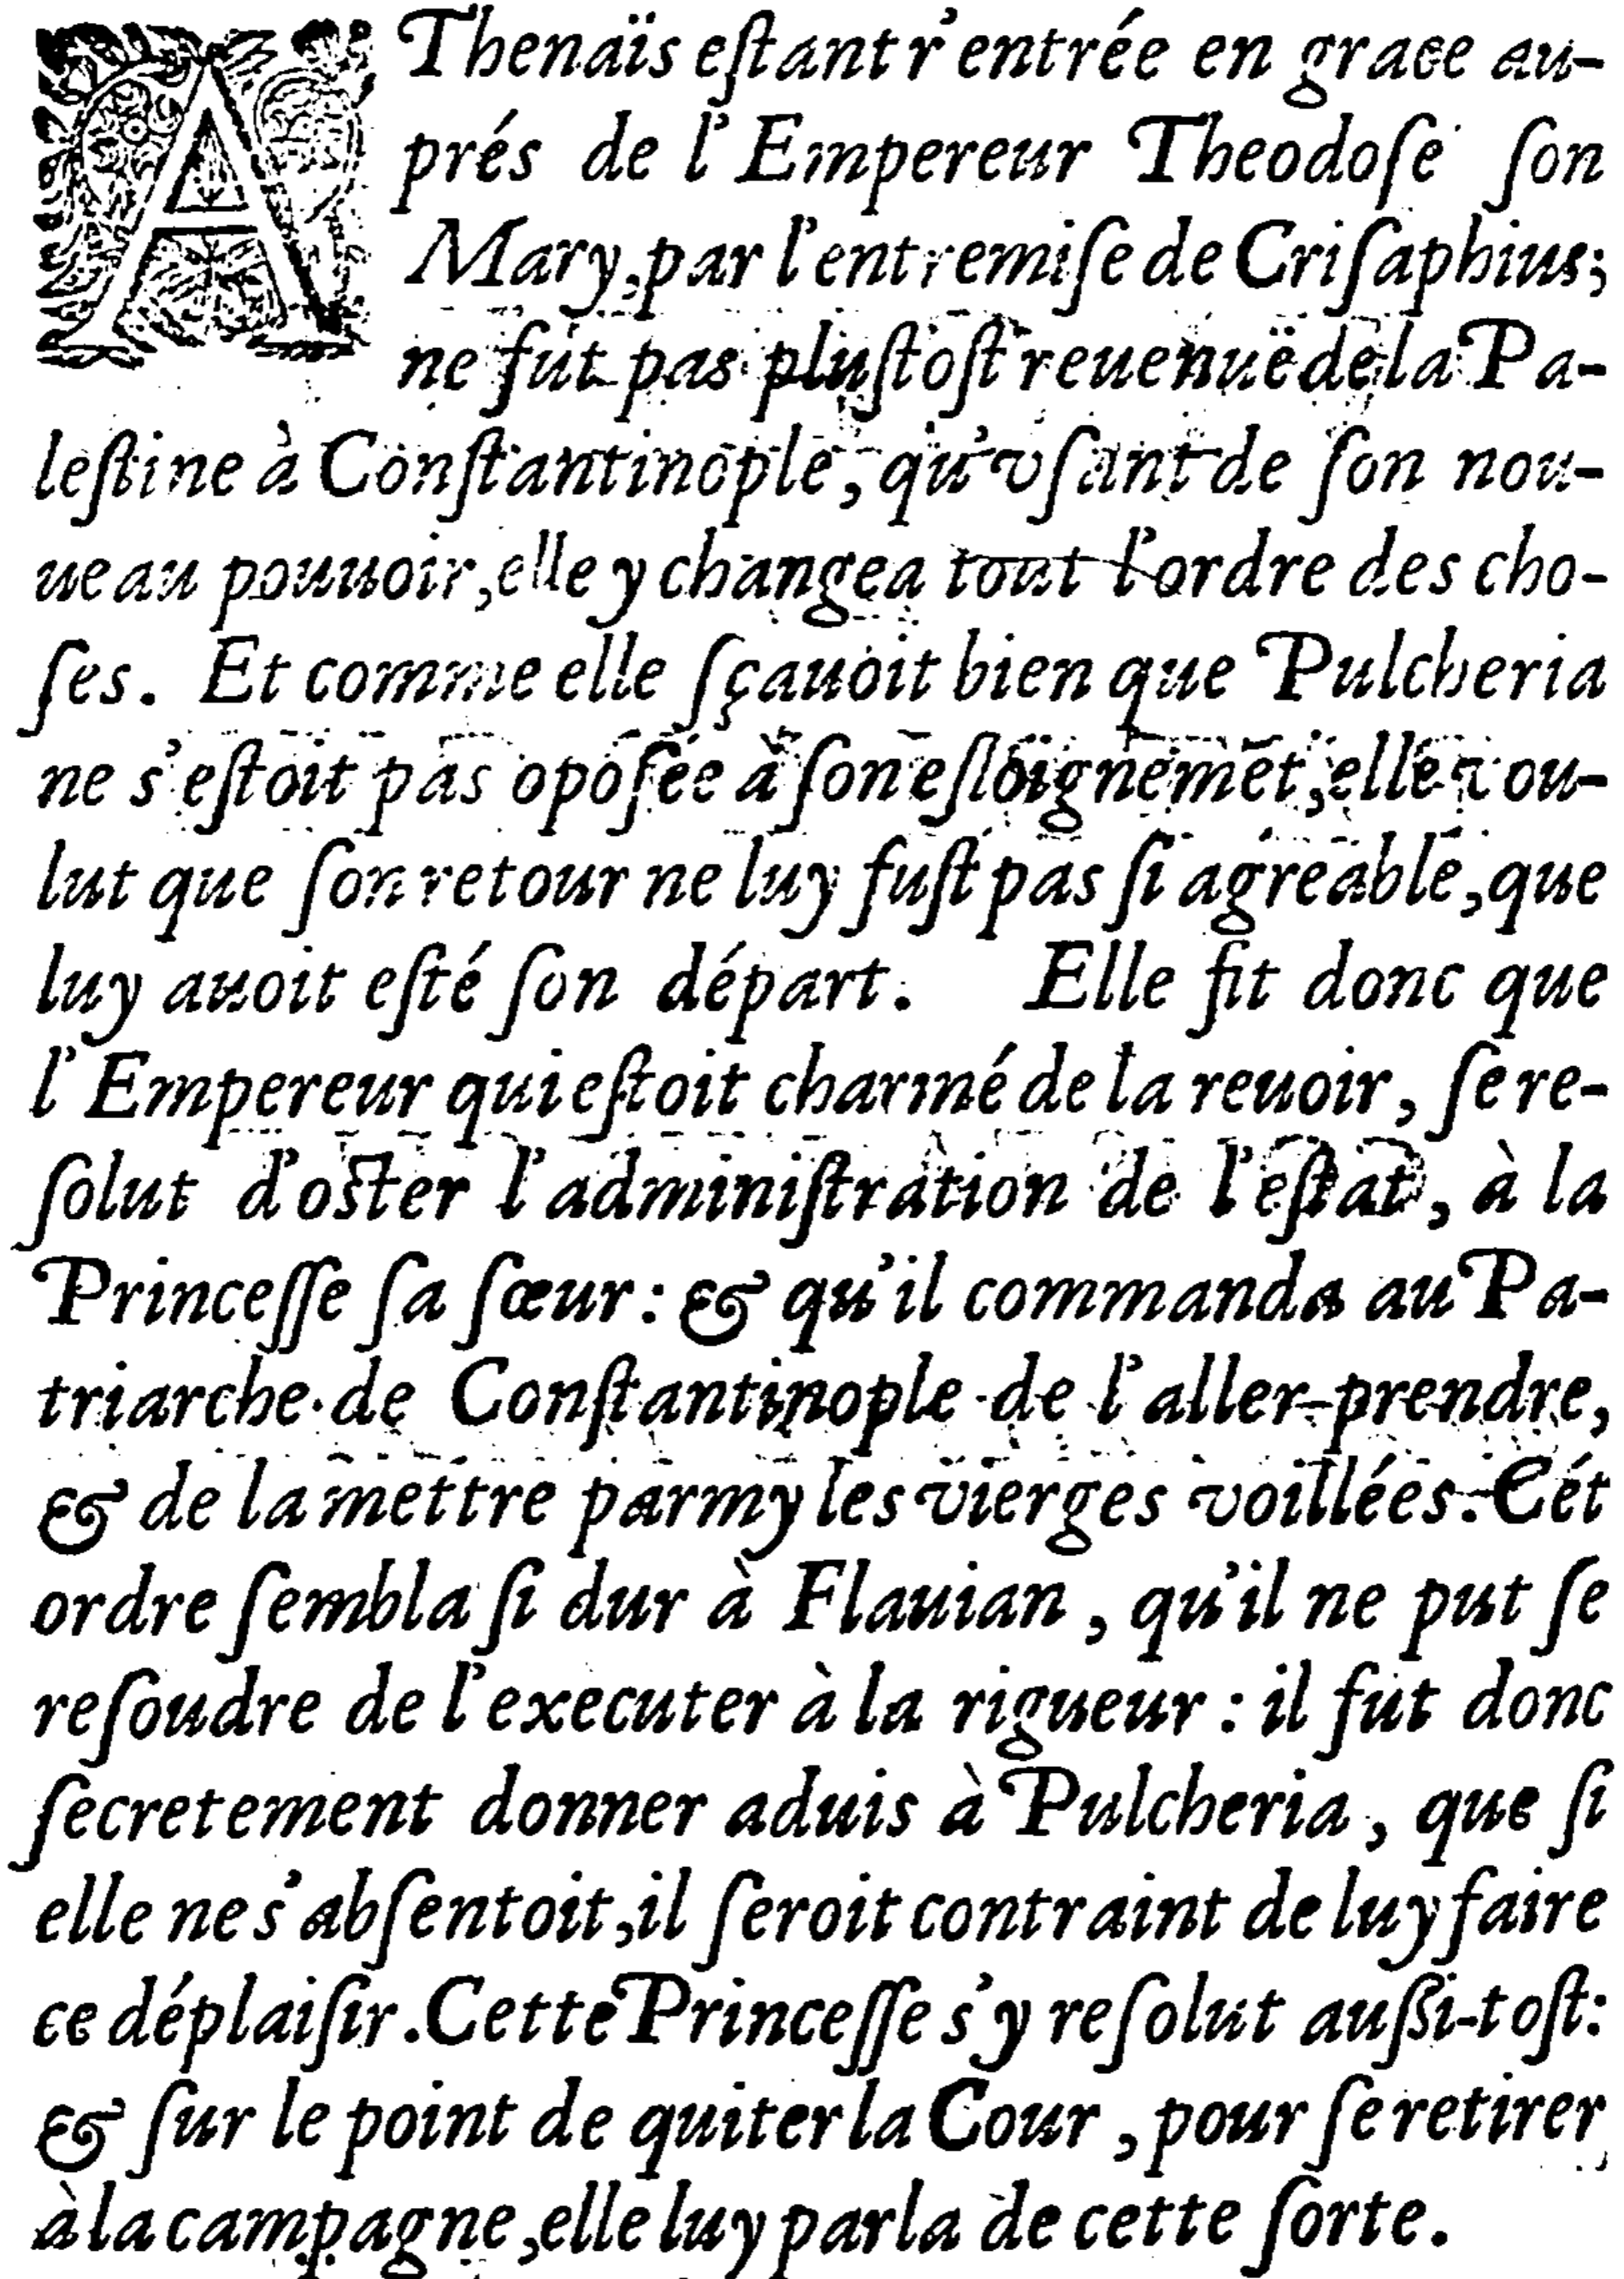 AThenaïs eſtant r'entrée en grace au-
prés de l'Empereur Theodoſe ſon
Mary, par l'entremiſe de Criſaphius;
ne fut pas pluſtoſt reuenuë de la Pa-
leſtine à Conſtantinople, qu'vſant de ſon nou-
ueau pouuoir, elle y changea tout l'ordre des cho-
ſes. Et comme elle ſçauoit bien que Pulcheria
ne s'eſtoit pas opoſée à ſon eſloignemẽt, elle vou-
lut que ſon retour ne luy fuſt pas ſi agreable, que
luy auoit eſté ſon départ. Elle fit donc que
l'Empereur qui eſtoit charmé de la reuoir, ſe re-
ſolut d'oſter l'adminiſtration de l'eſtat, à la
Princeſſe ſa ſœur: & qu'il commanda au Pa-
triarche de Conſtantinople de l'aller prendre,
& de la mettre parmy les vierges voillées. Cét
ordre ſembla ſi dur à Flauian, qu'il ne put ſe
reſoudre de l'executer à la rigueur: il fut donc
ſecretement donner aduis à Pulcheria, que ſi
elle ne s'abſentoit, il ſeroit contraint de luy faire
ce déplaiſir. Cette Princeſſe s'y reſolut auſſi-toſt:
& ſur le point de quiter la Cour, pour ſe retirer
à la campagne, elle luy parla de cette ſorte.